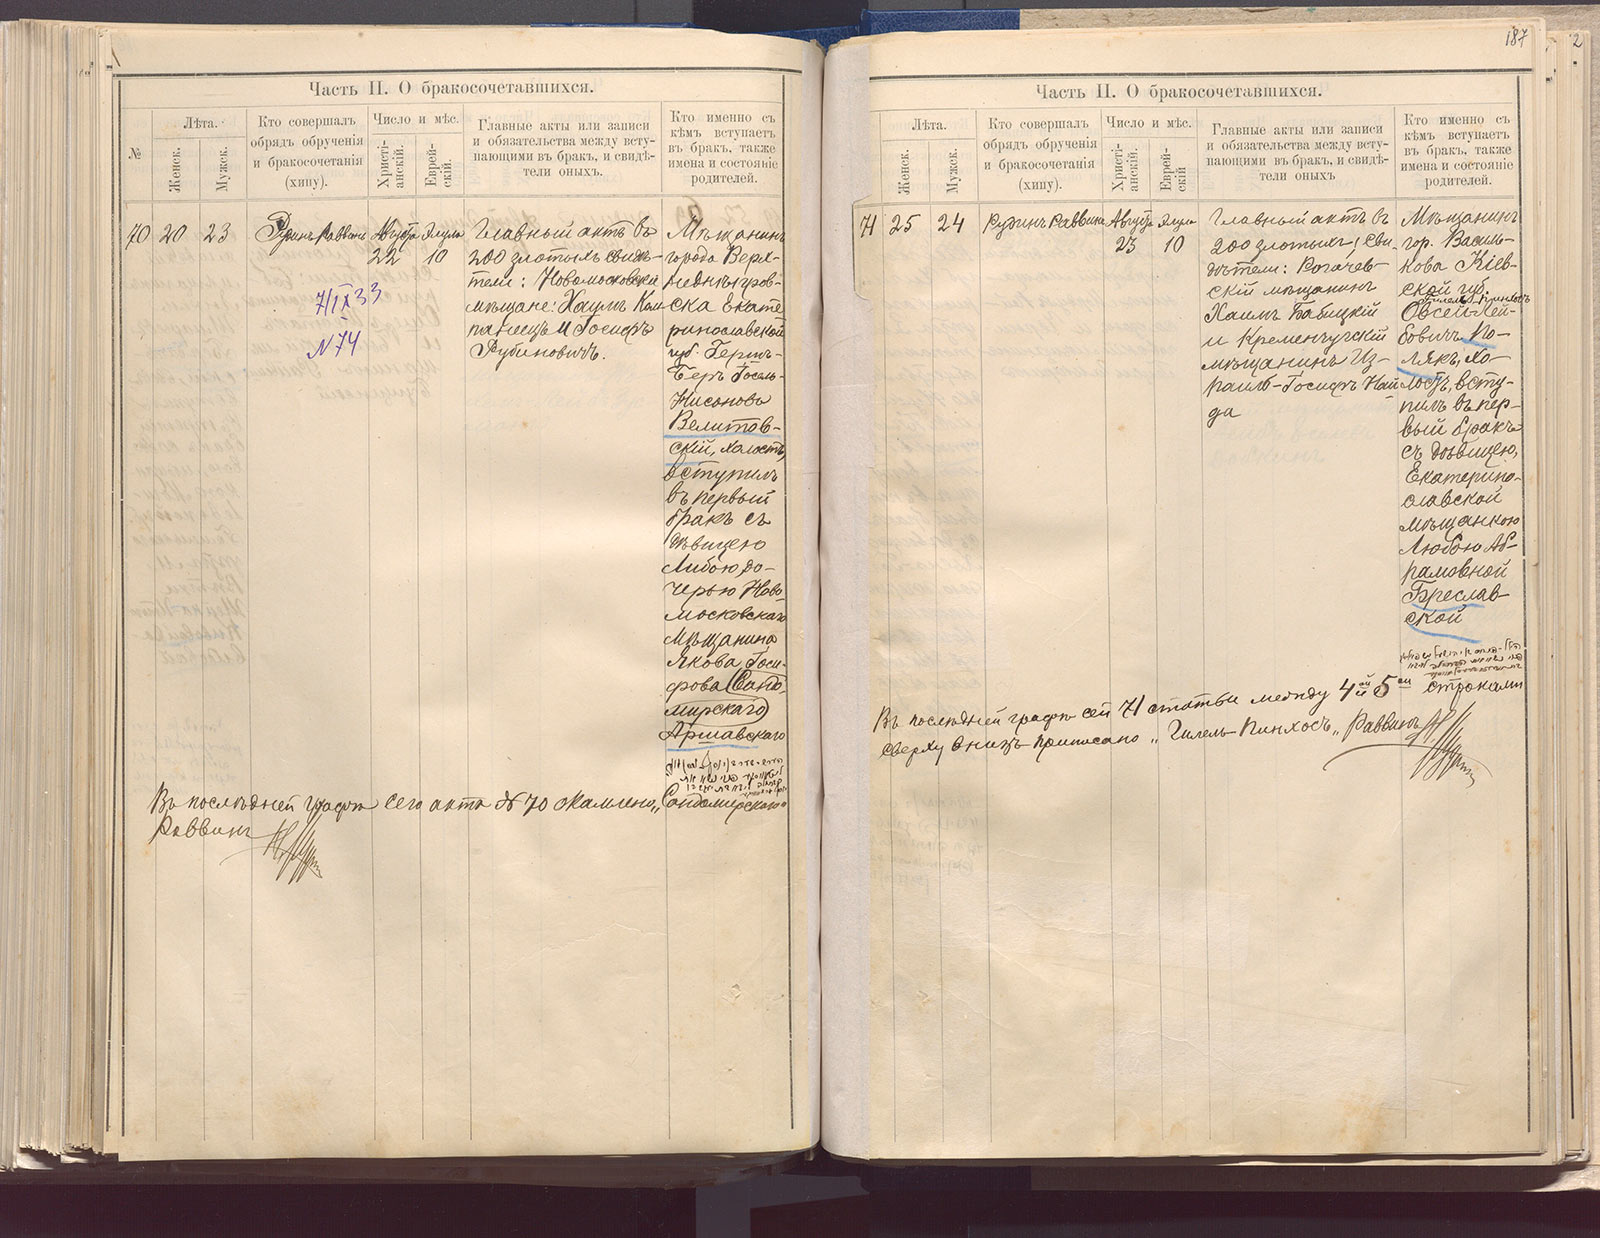 Часть II. О бракосочетавшихся.
№
Лѣта.
Женск.
Мужск.
Кто совершалъ
обрядъ обрученія
и бракосочетанія
(хипу).
Число и мѣс.
Христі-
анскій.
Еврей-
скій.
Главные акты или записи
и обязательства между всту-
пающими въ бракъ, и свидѣ-
тели оныхъ.
Кто именно съ
кѣмъ вступаетъ
въ бракъ, также
имена и состояніе
родителей.
70 20 23
Раввинъ
Августа
22
Элула
10
7/IX 33
N 74
Главный актъ въ
200 злотыхъ свидѣ-
тели: Новомосковскіе
мѣщане: Хаимъ
и Іосифъ
Рубиновичъ.
Мѣщанинъ
города Верх-
неднѣпров-
ска Екате-
ринославской
губ. Герцъ-
Беръ Іосель-
Нисоновъ
Велитов-
скій, холостъ,
вступилъ
въ первый
бракъ съ
дѣвицею
Либою до-
черью Ново-
московскаго
мѣщанина
Якова Іоси-
фова (Сандо-
мирскаго)
Аршавскаго
Въ послѣдней графѣ сего акта № 70 „Сандомирскаго“
Раввинъ
187
Часть II. О бракосочетавшихся.
Лѣта.
Женск.
Мужск.
Кто совершалъ
обрядъ обрученія
и бракосочетанія
(хипу).
Число и мѣс.
Христі-
анскій.
Еврей-
скій
Главные акты или записи
и обязательства между всту-
пающими въ бракъ, и свидѣ-
тели оныхъ
Кто именно съ
кѣмъ вступаетъ
въ бракъ, также
имена и состояніе
родителей.
71 25 24
Раввинъ
Августа
23
Элула
10
Главный актъ въ
200 злотыхъ, Сви-
дѣтели: Рогачев-
скій мѣщанинъ
Хаимъ Бабицкій
и Кременчугскій
мѣщанинъ Из-
раиль-Іосифъ Най
да
Мѣщанинъ
гор. Василь-
кова Кіев-
ской губ.
Гилель-Пинхосъ
Овсей-Лей-
бовичъ По-
лякъ, хо-
лостъ, всту-
пилъ въ пер-
вый бракъ
съ дѣвицею,
Екатерино-
славской
мѣщанкою
Любою Аб-
рамовной
Бреслав-
ской
Въ послѣдней графѣ сей 71 статьи между 4ой и 5ой строками
сверху внизъ приписано „Гилель-Пинхосъ„ Раввинъ